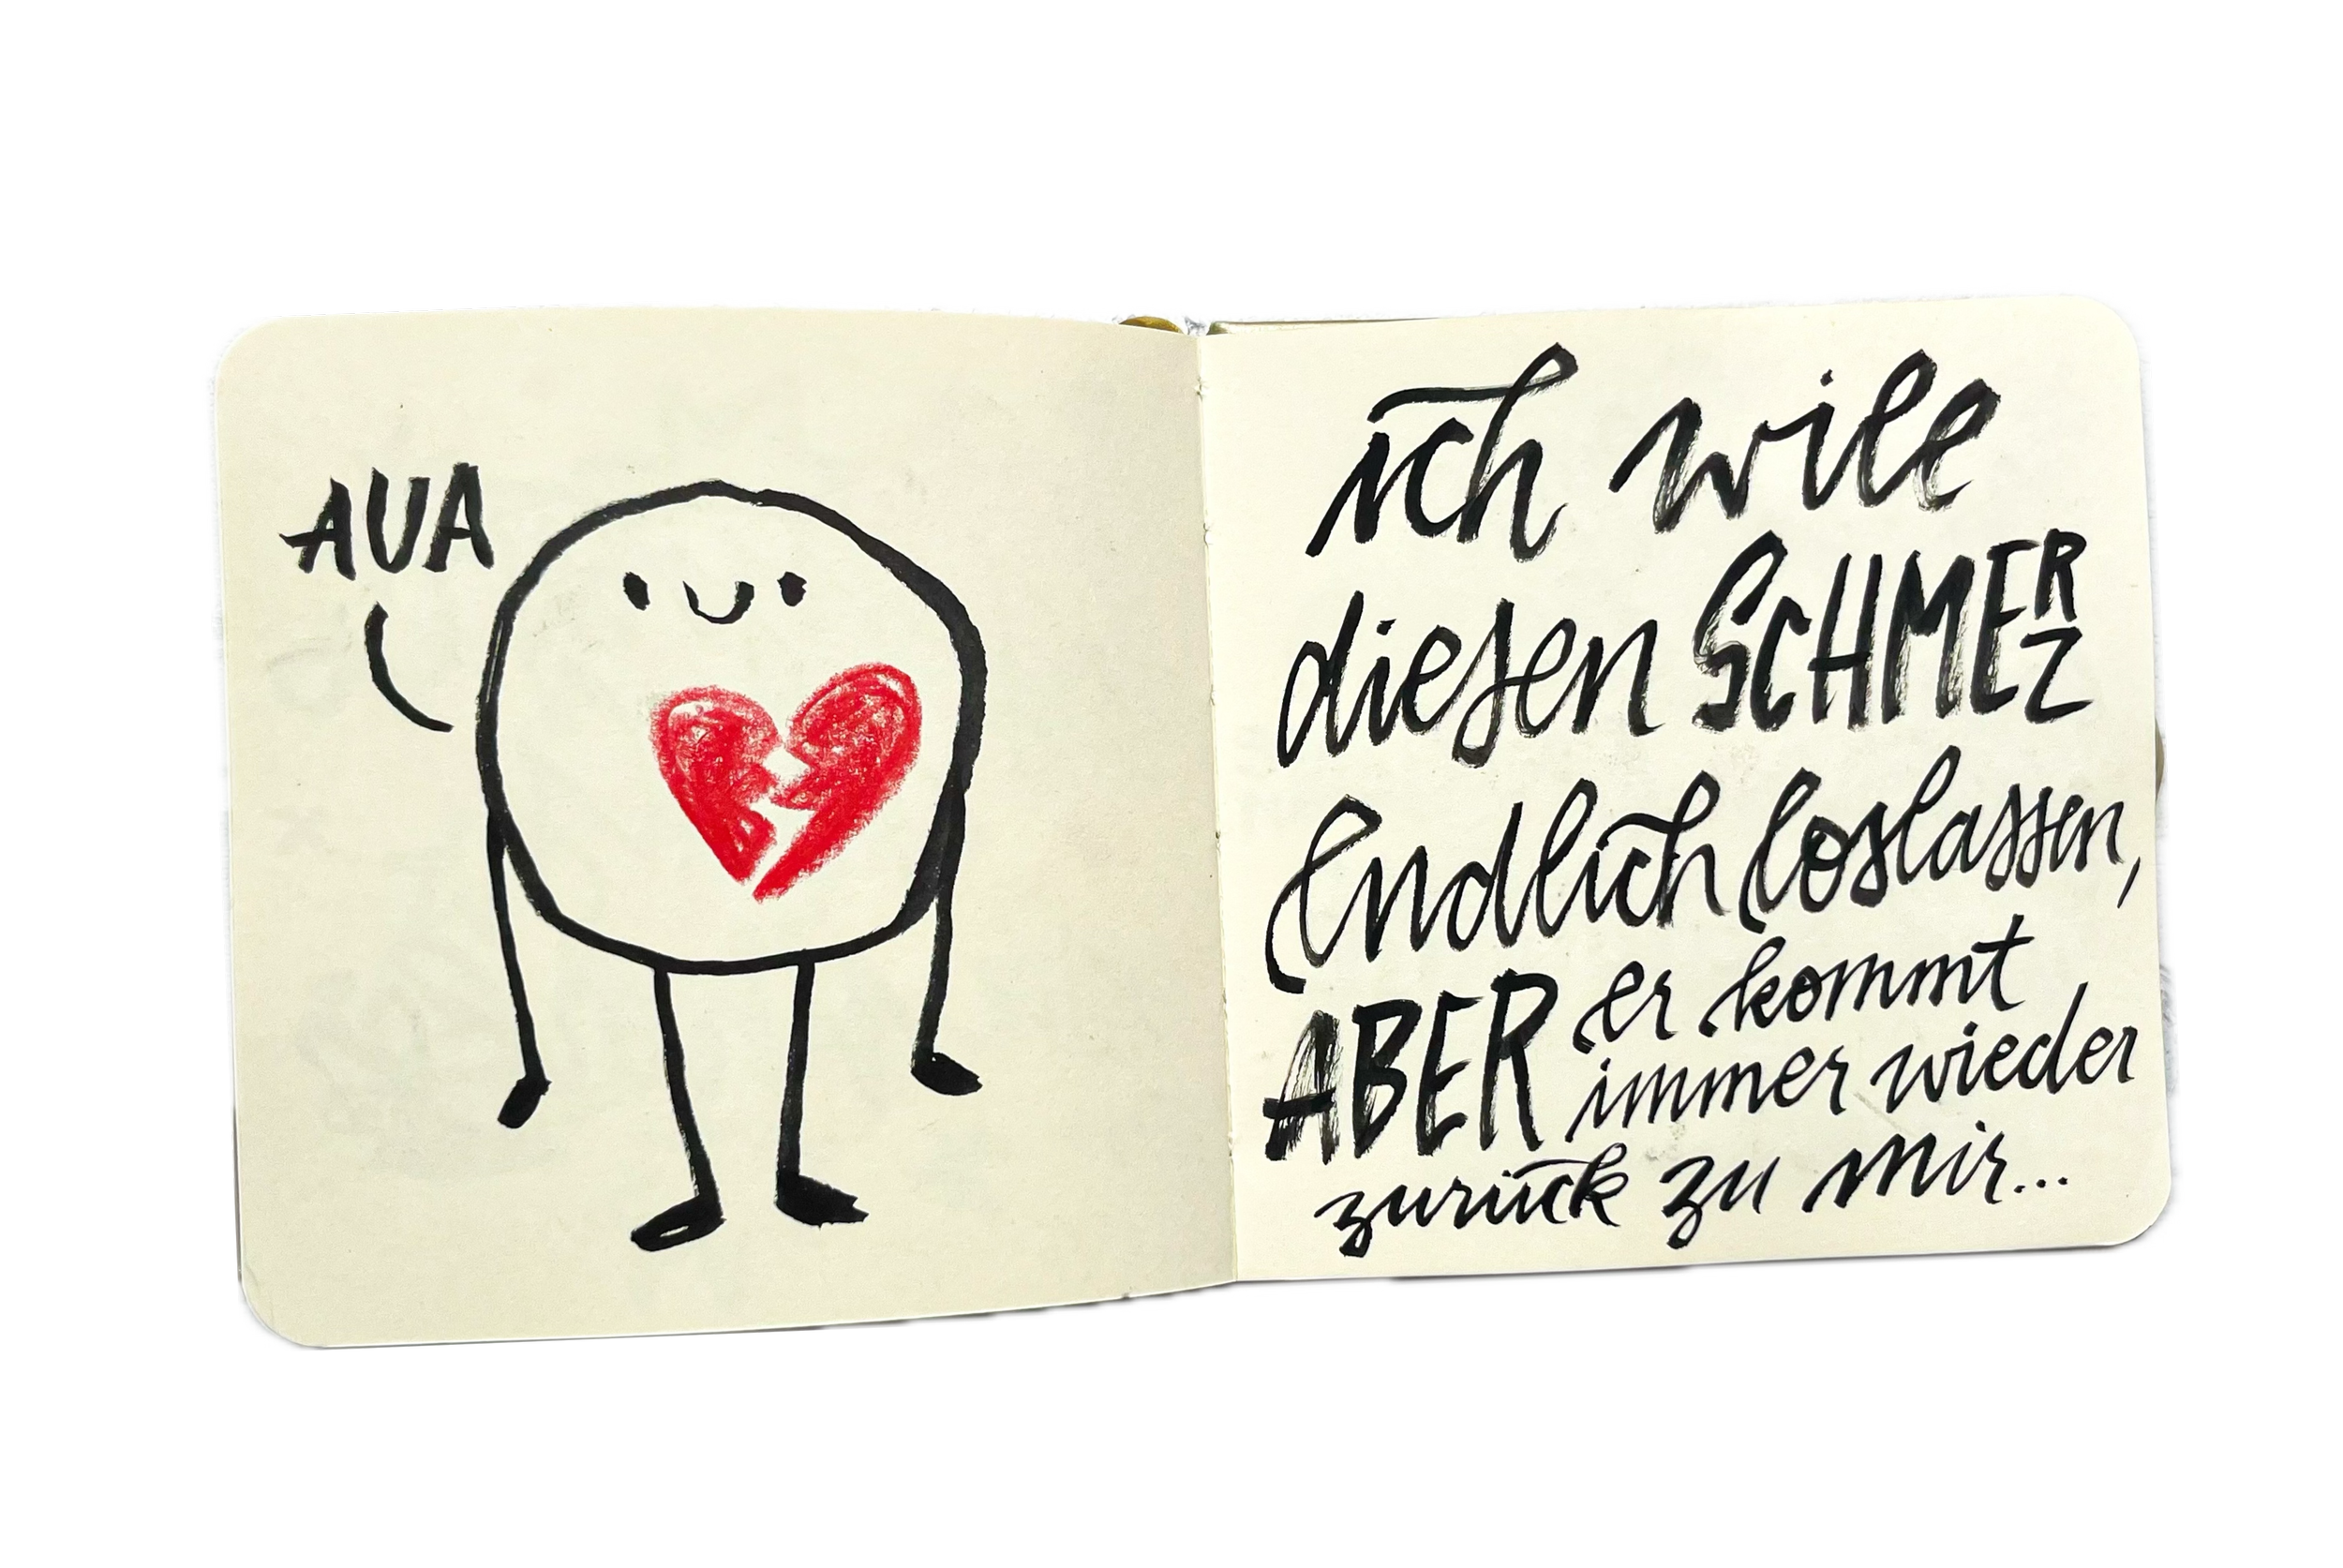 AUA
ich will
diesen SCHMERZ
endlich loslassen,
ABER er kommt
immer wieder
zurück zu mir...